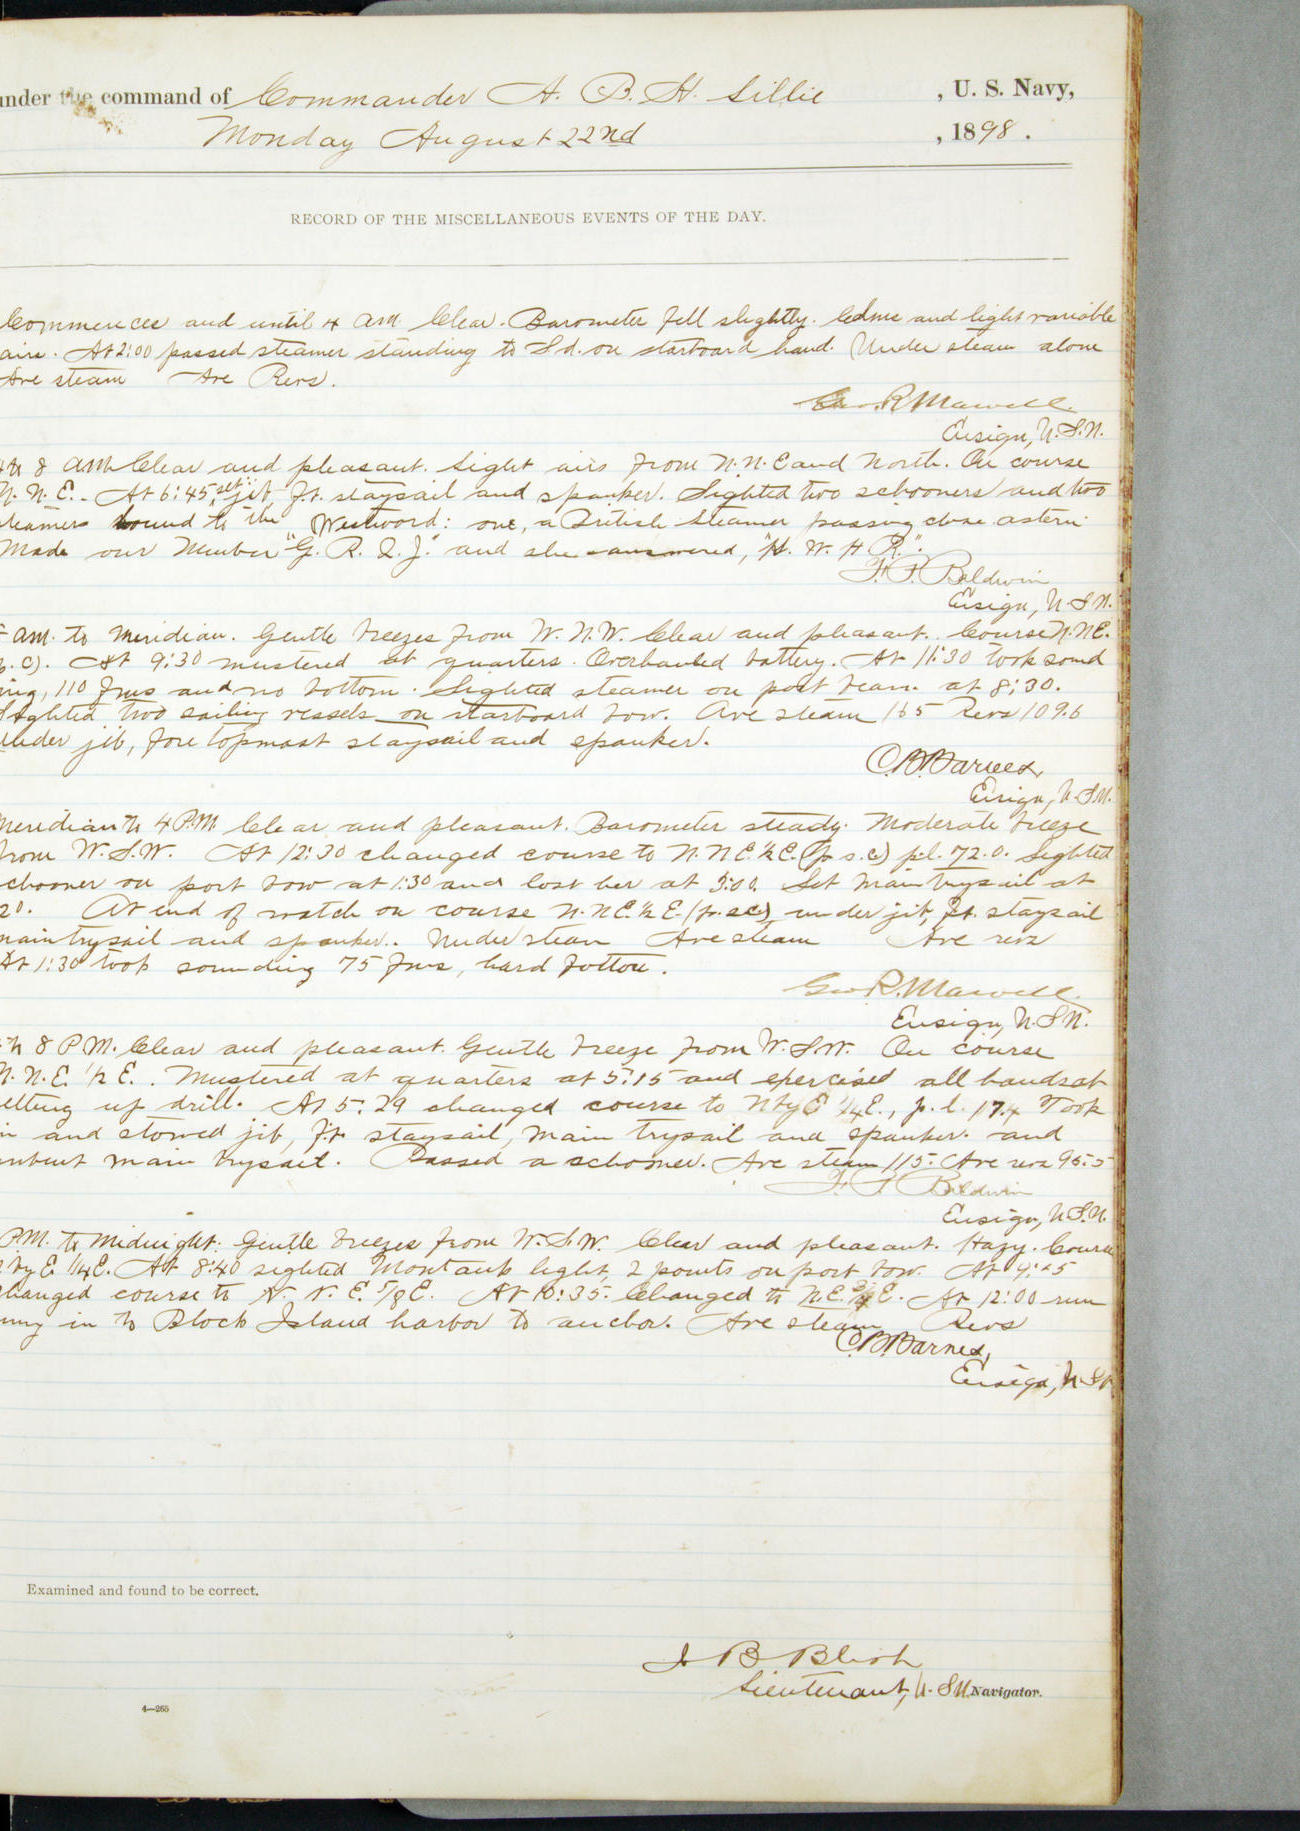 under the command of Commander A. B. H. Lillie , U. S. Navy,
Monday August 22nd , 1898.
RECORD OF THE MISCELLANEOUS EVENTS OF THE DAY.
Commences and until 4 am. Clear. Barometer fell slightly. Calms and light variable
airs. At 2:00 passed steamer standing to Sd. on starboard hand. Under steam alone
Ave steam Ave Revs.
Geo. R. Marvell.
Ensign, U.S.N.
8 am Clear and pleasant. Light airs from N.N.E and North. On course
N.N.E. At 6:45, set jib, ft. staysail and spanker. Sighted two schooners and two
steamers bound to the Westward: one, a British steamer passing close astern
Made our Number "G. R. Q. J." and she answered, "H. W. H R.".
F. P. Baldwin
Ensign, U.S.N.
am. to meridian. Gentle breezes from W.N.W. Clear and pleasant. Course N.NE.
p.c). At 9:30 mustered at quarters. Overhauled battery. At 11:30 took sound
ing, 110 fms and no bottom. Sighted steamer on port beam at 8:30.
Sighted two sailing vessels on starboard bow. Ave steam 165 Revs 109.6
Under jib, fore topmast staysail and spanker.
C.B. Barnes,
Ensign, U.S.N.
Meridian to 4 P.M. Clear and pleasant. Barometer steady. Moderate breeze
from W.S.W. At 12:30 changed course to N.NE.½E. (p.s.c) p.l. 72.0. Sighted
schooner on port bow at 1:30 and lost her at 3:00. Set main trysail at
20. At end of watch on course N.NE.½E. (p.s.c), under jib, ft. staysail
main trysail and spanker. Under steam Ave steam Ave revs
At 1:30 took sounding 75 fms, hard bottom.
Geo R. Marvell.
Ensign, U.S.N.
8 P.M. Clear and pleasant. Gentle breeze from W.S.W. On course
N.N.E. ½ E. Mustered at quarters at 5:15 and exercised all hands at
etting up drill. At 5:29 changed course to NbyE ¼E., p.l. 17.4 Took
in and stowed jib, ft. staysail, main trysail and spanker. and
unbent main trysail. Passed a schooner. Ave steam 115. Ave revs 95.5
F. P. Baldwin
Ensign, U.S.N.
P.M. to Midnight. Gentle breezes from W.S.W. Clear and pleasant. Hazy. Course
by E. ¼E. At 8:40 sighted Montauk light, 2 points on port bow. At
changed course to N. N. E. 7/8 E. At 10:35. Changed to N.E. ¾ E. At 12:00 run
ning in to Block Island harbor to anchor. Ave steam Revs
C.B. Barnes,
Ensign, U.S.N.
Examined and found to be correct.
J B Blish
Lieutenant, U.S.N. Navigator.
4—265